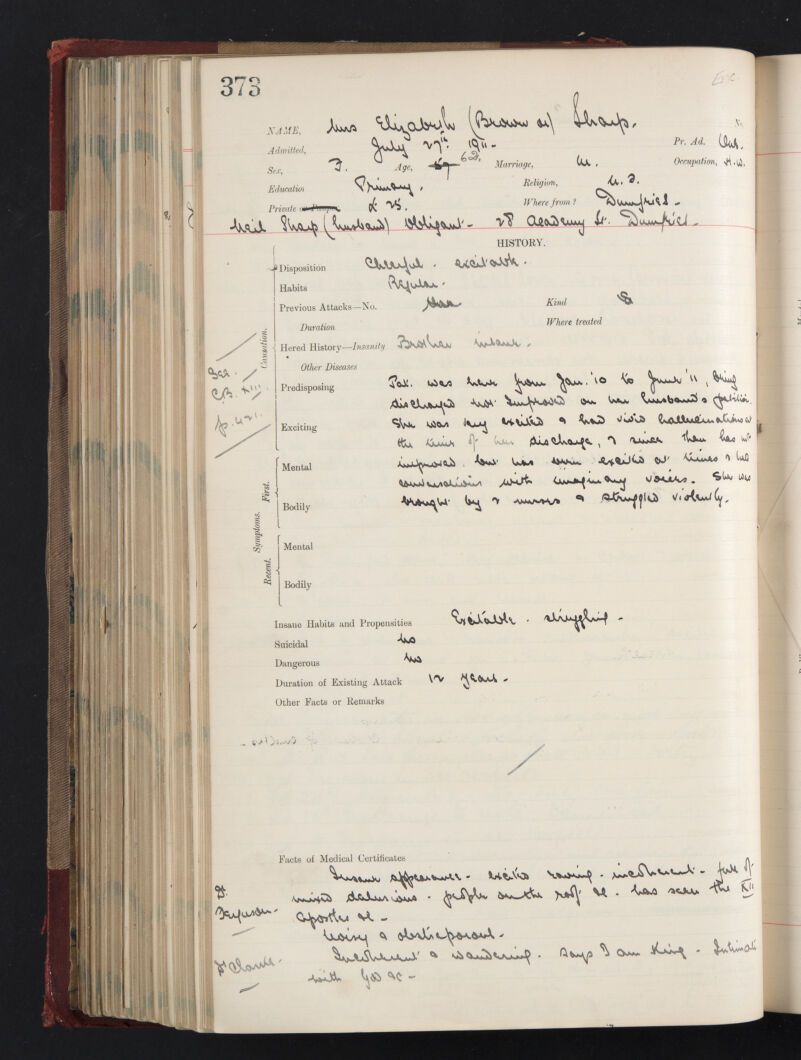 373
NAME, Mrs Elizabeth (Brown or) Sharp.
Admitted, July 27th 1911 - Pr. Ad.
Sex, F. Age, 62. Marriage, M. Occupation, H.W.
Education Primary. Religion, U.F.
Private £ 25. Where from? Dumfries -
Neil Sharp (husband) Obligant - 28 Academy St. Dumfries -
HISTORY.
Disposition Cheerful. excitable.
Habits Regular.
Previous Attacks—No. Kind
Duration Where treated
Causation.
Hered History—Insanity Brother insane.
Other Diseases
See.
C.B. XIII.
p. 421.
Predisposing Pat. was here from Jan. '10 to June '11, being
discharged not Improved on her husband's petition.
Exciting She was very excited & had vivid hallucinations at
the time of her discharge, & since then has not
Symptoms. First. Mental improved. but has been excited at times & had
conversations with imaginary voices. She was
Bodily brought by 2 nurses & struggled violently.
Recent. Mental
Bodily
Insane Habits and Propensities Excitable. struggling -
Suicidal No
Dangerous No
Duration of Existing Attack 12 years -
Other Facts or Remarks
Facts of Medical Certificates
Insane appearance - excited raving - incoherent - full of
Dr. mixed delusions - people on the roof &c. has seen the XII
Ferguson - apostles &c -
Noisy & obstreperous -
Dr Clarke - Incoherent & wandering. says I am King - Intimate
with God &c -